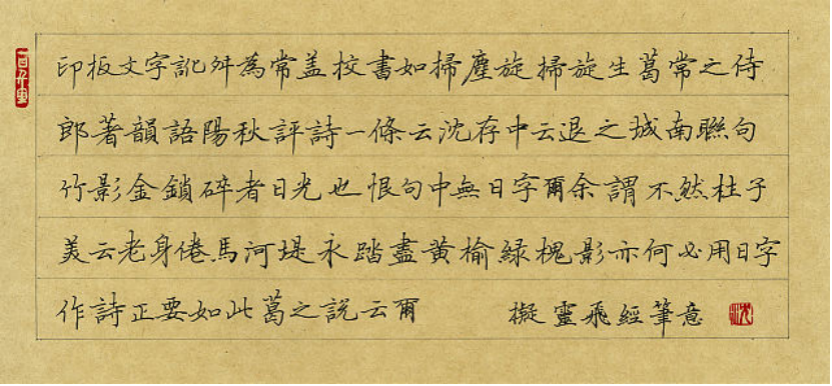 印板文字訛舛為常盖校書如掃塵旋掃旋生葛常之侍
郎著韻語陽秋評詩一條云沈存中云退之城南聯句
竹影金鎖碎者日光也恨句中無日字爾余謂不然杜子
美云老身倦馬河堤永踏盡黄榆緑槐影亦何必用日字
作詩正要如此葛之説云爾
擬靈飛經筆意